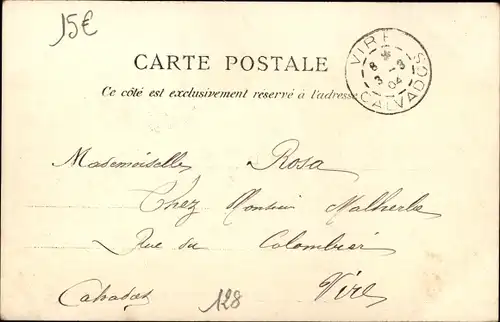 15€
CARTE POSTALE
Ce côté est exclusivement réservé à l'adresse
VIRE
8
3 - 3
04
CALVADOS
Mademoiselle Rosa
Chez Monsieur Malherbe
Rue du Colombier
Calvados Vire
128